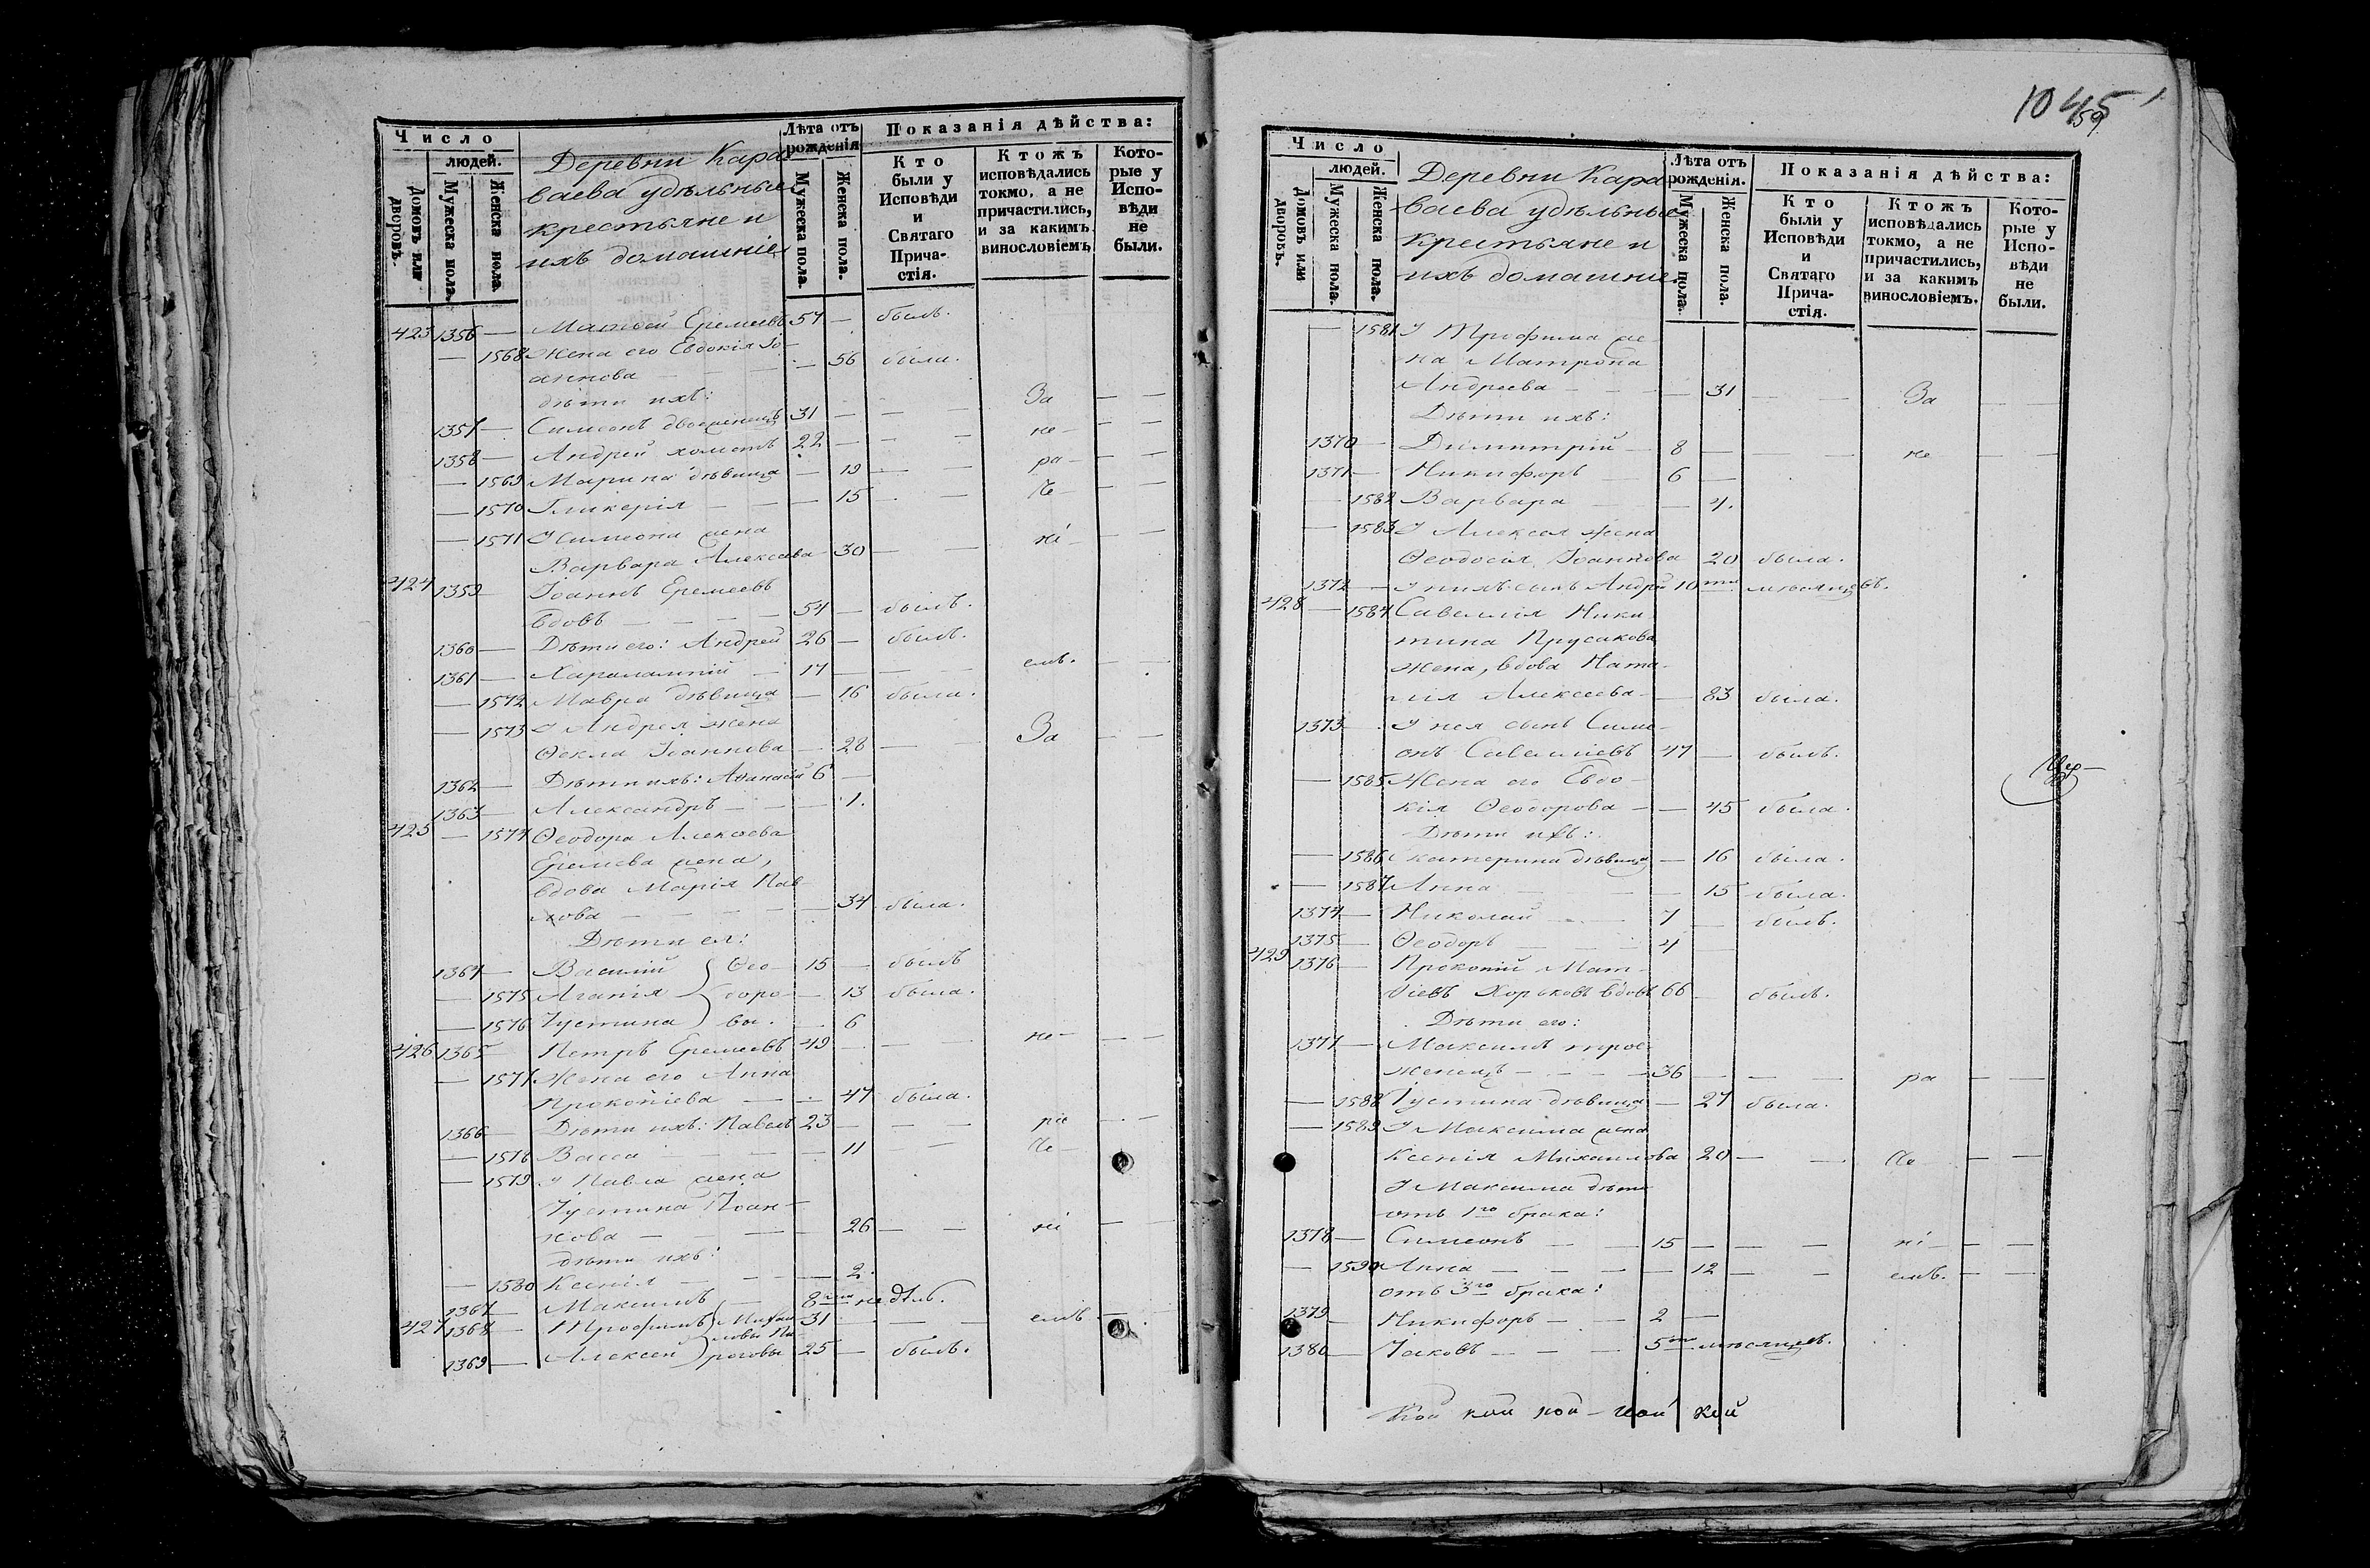 Число
людей.
Домовъ или дворовъ.
Мужеска пола.
Женска пола.
Деревни Кара-
ваева удѣльные
крестьяне и
ихъ домашніе
Лѣта отъ рожденія
Мужеска пола.
Женска пола.
Показанія дѣйства:
Кто были у Исповѣди и Святаго Прича-стія.
Ктожъ исповѣдались токмо, а не причастились, и за какимъ винословіемъ.
Кото-рые у Испо-вѣди не были.
423 1356 — Матвей Еремеевъ 57 — былъ.
— 1568 Жена его Евдокія Іо-
аннова — — 56 была.
дѣти ихъ: За — —
1357 — Симеонъ двоеженецъ 31 — — —
1358 — Андрей холостъ 22 — — — не — — —
— 1569 Марина дѣвица — 19 — — ра — — —
— 1570 Гликерія — — — 15 — — че — — —
— 1571 У Симеона жена
Варвара Алексеева — 30 — — ні — — —
424 1359 — Іоаннъ Еремеевъ
вдовъ — — — — 54 — былъ.
1360 — Дѣти его: Андрей 26 — былъ.
1361 — Харалампій — 17 — — — емъ. — —
— 1572 Мавра дѣвица — 16 была.
— 1573 У Андрея жена
Ѳекла Іоаннова — 28 — — За — —
1362 — Дѣти ихъ: Аѳанасій 6 —
1363 — Александръ — — — 1.
425 — 1574 Ѳеодора Алексеева
Еремеева жена,
вдова Марія Пав-
лова — — — — — 34 была.
Дѣти ея:
1364 — Василій Ѳео- 15 — былъ
— 1575 Агапія доро- — 13 была.
— 1576 Іустина вы. — 6
426 1365 — Петръ Еремеевъ 49 — — — не — — —
— 1577 Жена его Анна
Прокопіева — — 47 была.
1366 — Дѣти ихъ: Павелъ 23 — — — ра — —
— 1578 Васса — — — — 11 — — че — —
— 1579 У Павла жена
Іустина Иоан-
нова — — — — 26 — — ні — —
дѣти ихъ:
— 1580 Ксенія — — — — 2.
1367 — Максимъ — 8 недѣль.
427 1368 — Трофимъ Михаи- 31 — — — емъ — —
1369 — Алексей ловы Пи-роговы 25 — былъ.
10 45
59
Число
людей.
Домовъ или дворовъ.
Мужеска пола.
Женска пола.
Деревни Кара-
ваева удѣльные
крестьяне и
ихъ домашніе.
Лѣта отъ рожденія.
Мужеска пола.
Женска пола.
Показанія дѣйства:
Кто были у Исповѣди и Святаго Прича-стія.
Ктожъ исповѣдались токмо, а не причастились, и за какимъ винословіемъ.
Кото-рые у Испо-вѣди не были.
— 1581 У Трофима же-
на Матрона
Андреева — — — 31 — — За — —
Дѣти ихъ:
1370 — Димитрій — 8 — — — не — —
1371 — Никифоръ — 6 —
— 1582 Варвара — — — 4.
— 1583 У Алексея жена
Ѳеодосія Іоаннова 20 была.
1372 — У нихъ сынъ Андрей 10ти мѣсяцевъ.
428 — 1584 Савелія Ники-
тина Прусакова
жена, вдова Ната-
лія Алексеева — — 83 была.
1373 — У нея сынъ Симе-
онъ Савеліевъ 47 — былъ.
— 1585 Жена его Евдо-
кія Ѳеодорова — — 45 была.
Дѣти ихъ:
— 1586 Екатерина дѣвица — 16 была.
— 1587 Анна — — — 15 была.
1374 — Николай — — 7 — былъ.
1375 — Ѳеодоръ — — — 4 —
429 1376 — Прокопій Мат-
ѳіевъ Хорьковъ вдовъ 66 — былъ.
Дѣти его:
1377 — Максимъ трое-
женецъ — — — 36 — — — ра — —
— 1588 Іустина дѣвица — 27 была.
— 1589 У Максима жена
Ксенія Михаилова 20 — — че — —
У Максима дѣти
отъ 1го брака:
1378 — Симеонъ — — 15 — — — ні — — —
— 1590 Анна — — — — 12 — — емъ. — —
отъ 3го брака:
1379 — Никифоръ — — 2 —
1380 — Іаковъ — — — 5ти мѣсяцевъ.